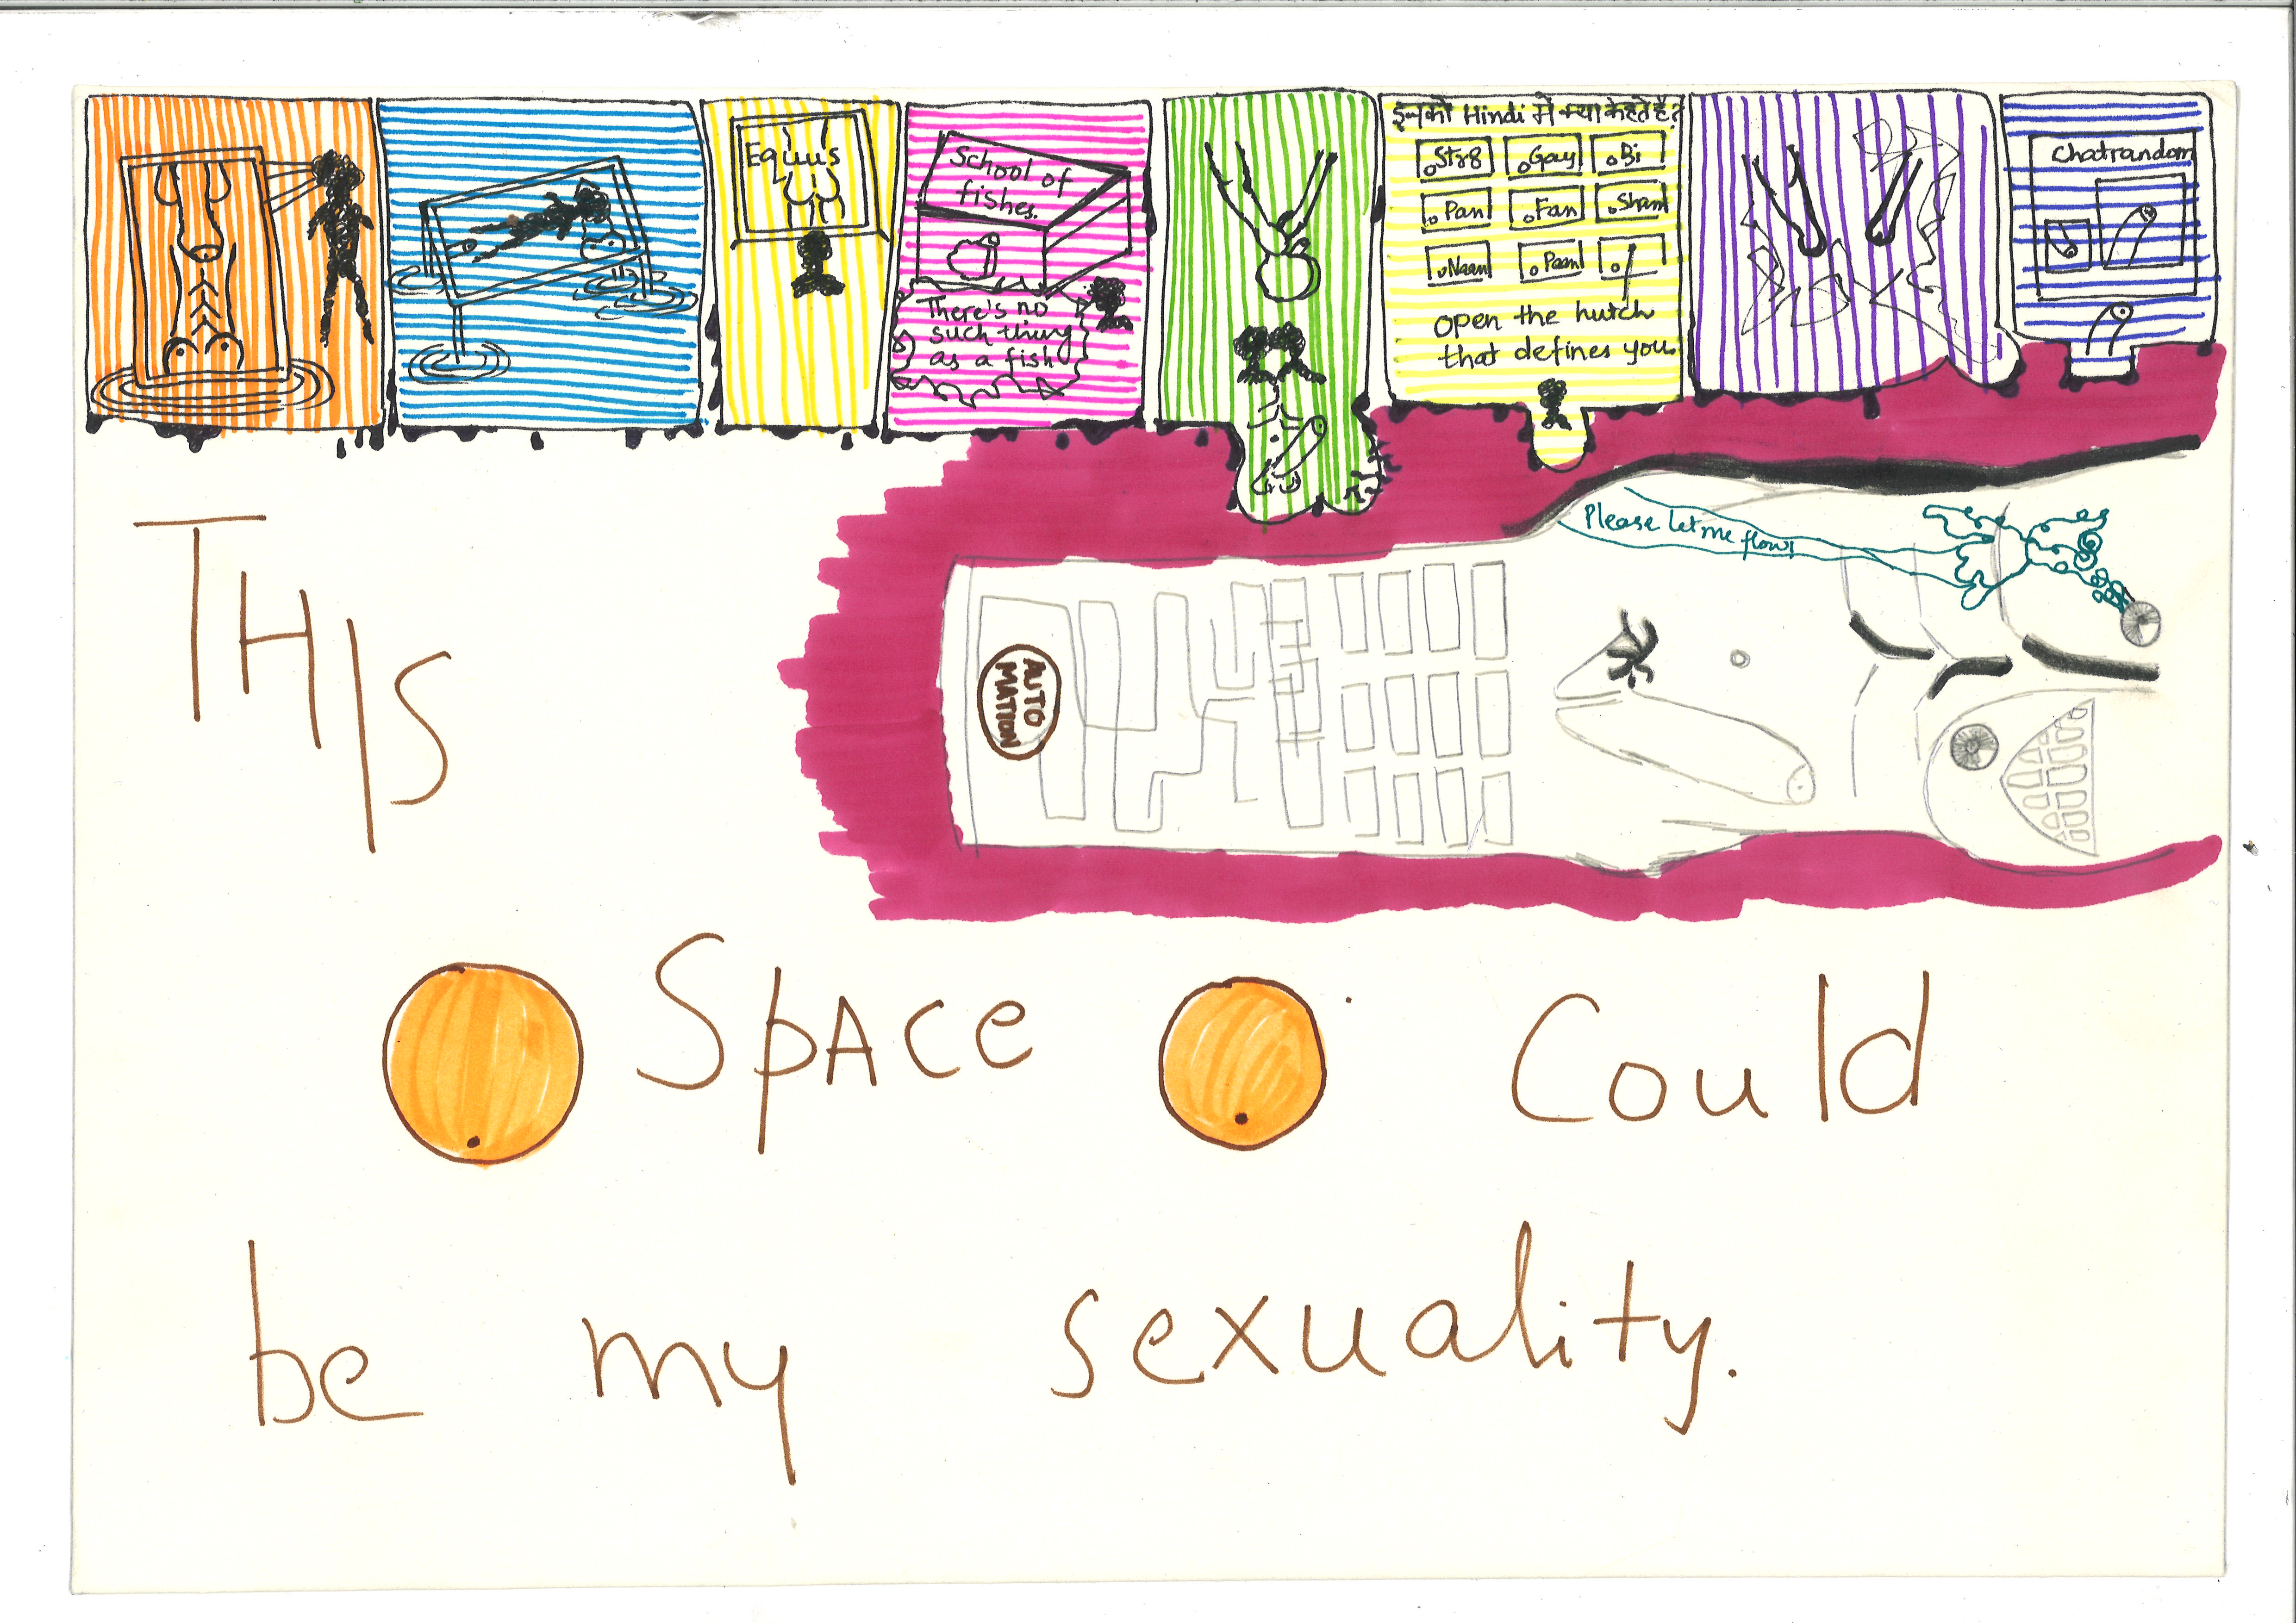 Equus
School of
fishes.
There's no
such thing
as a fish
इनको Hindi में क्या कहते है?
Str8 Gay Bi
Pan Fan Sham
Naan Paan
open the hutch
that defines you.
Chatrandom
Please let me flow!
AUTO
MATION
THIS
SPACE Could
be my sexuality.